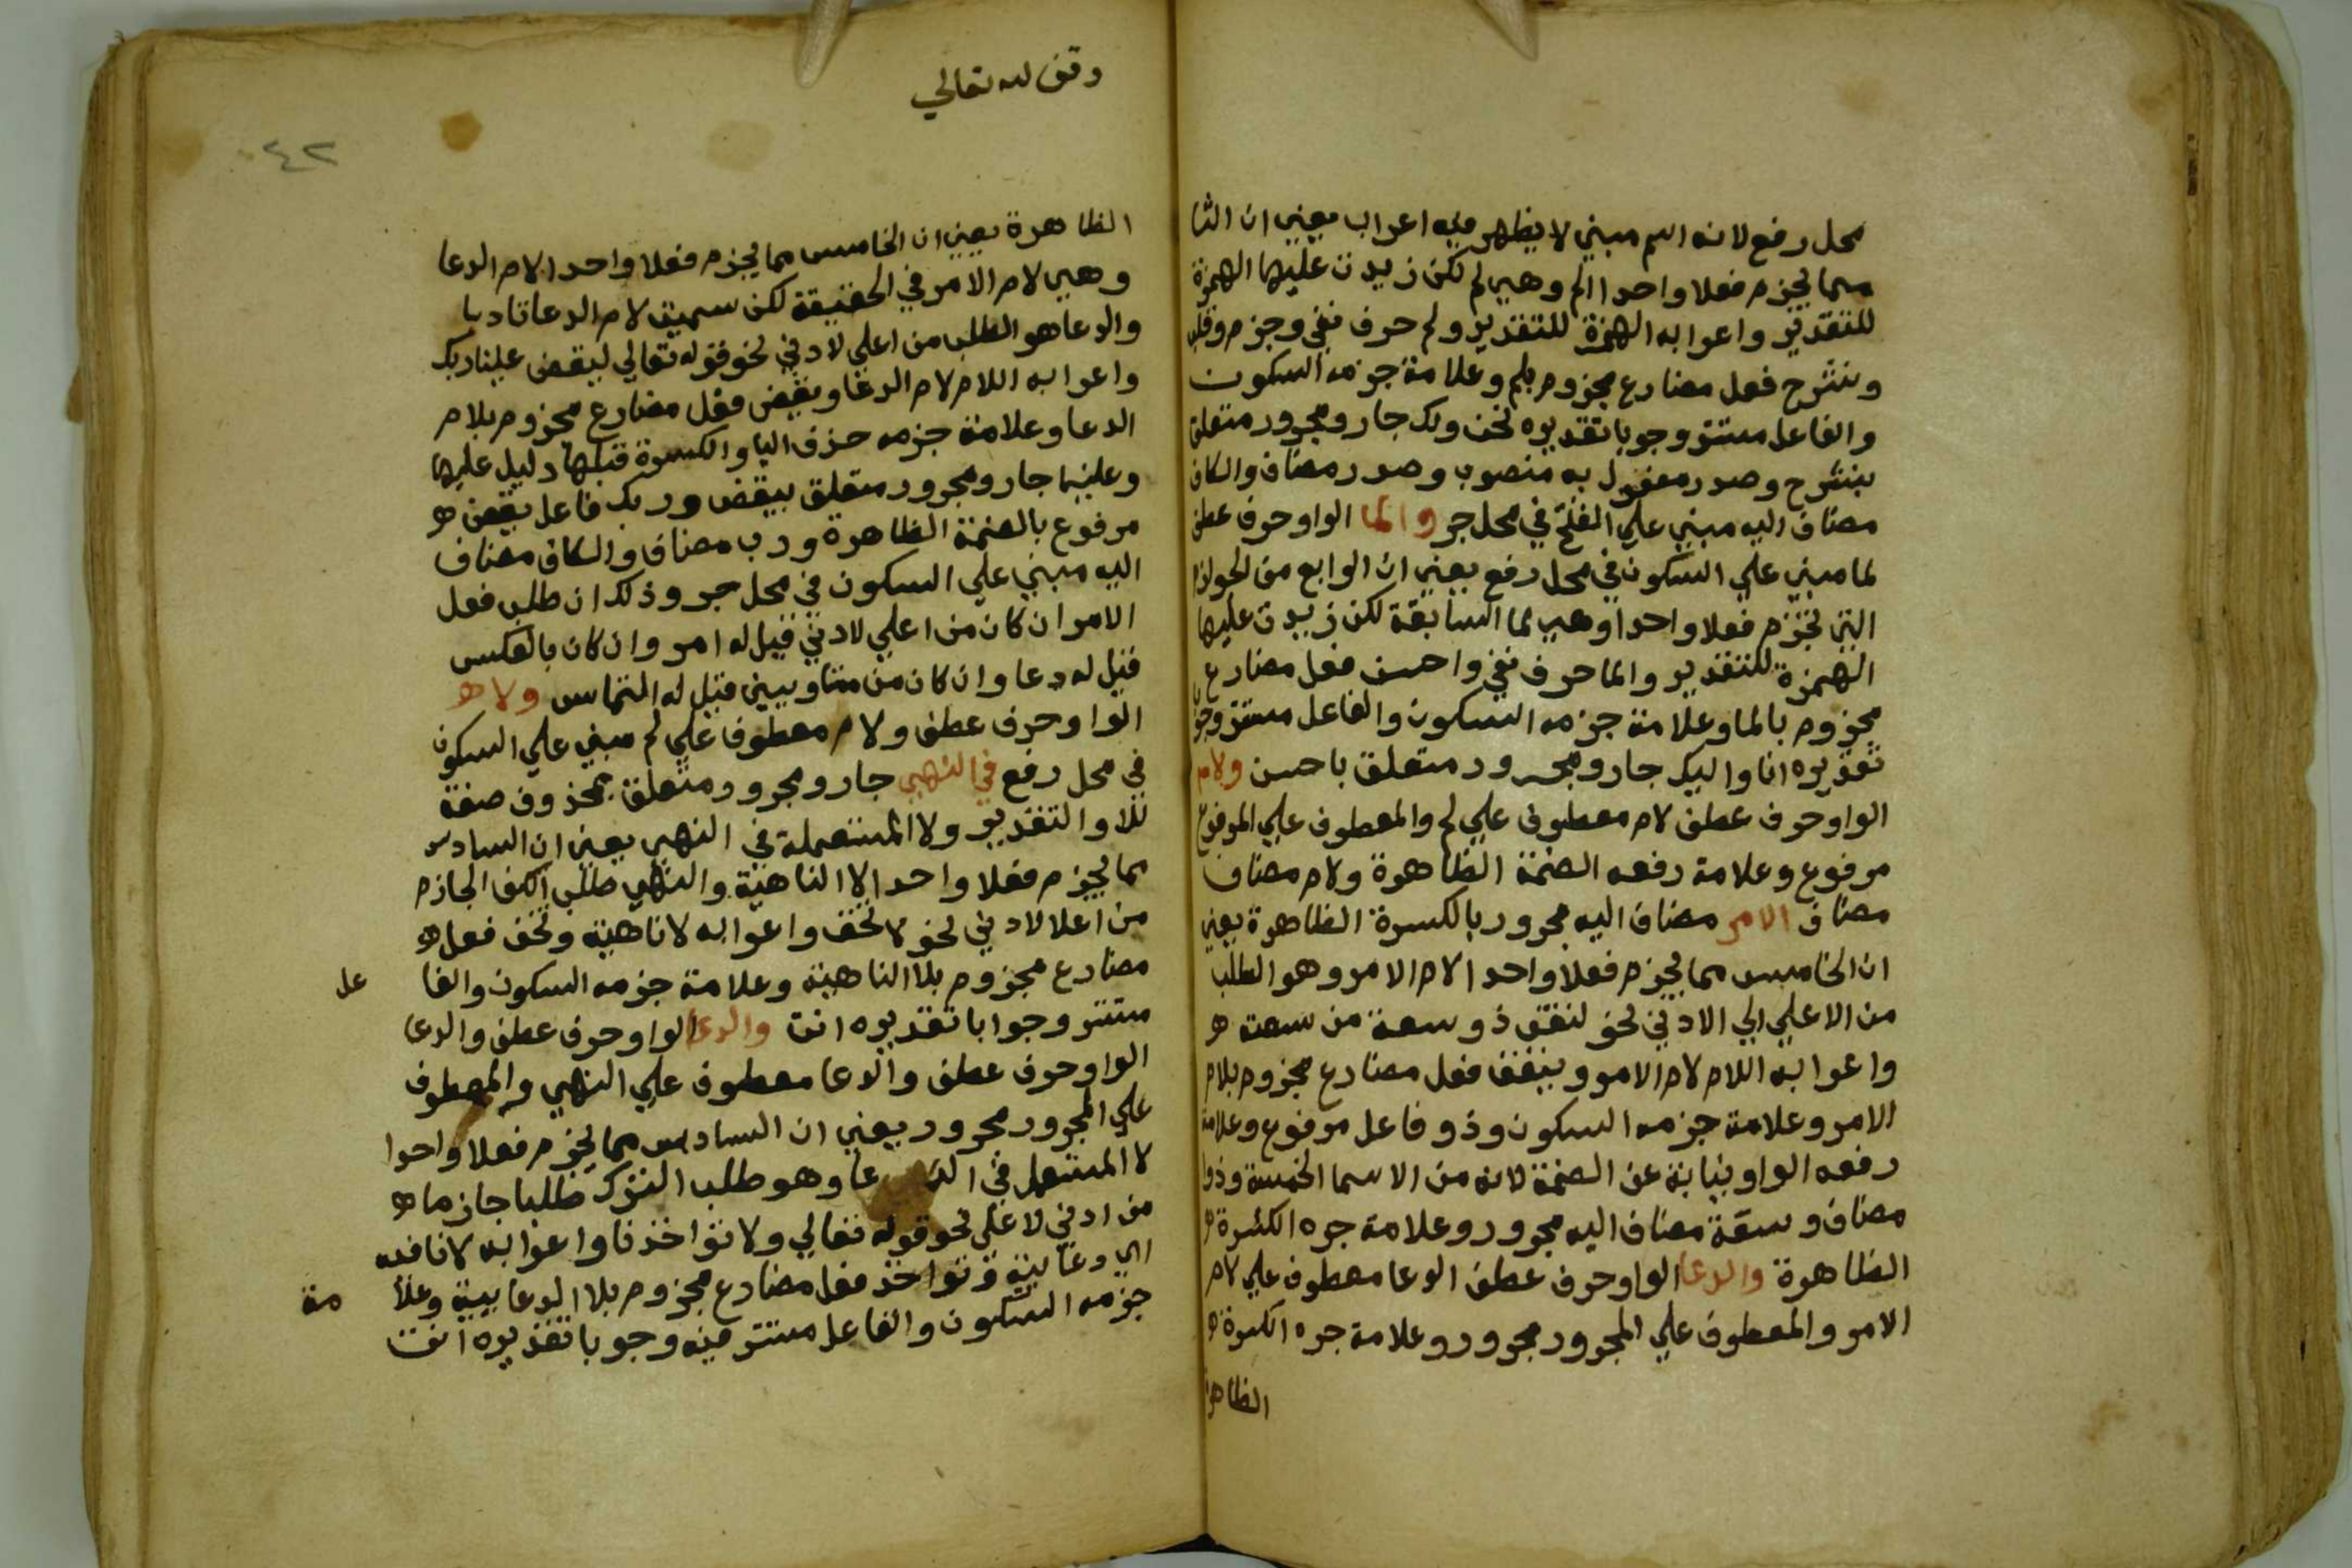 محل رفع لانه اسم مبني لا يظهر فيه اعراب يعني ان الثا
مما يجزم فعلا واحدا الم وهي لم لكن زيدت عليها الهمزة
للتقدير واعرابه الهمزة للتقدير ولم حرف نفي وجزم وقلب
ونشرح فعل مضارع مجزوم بلم وعلامة جزمه السكون
والفاعل مستتر وجوبا تقديره نحن ولك جار ومجرور متعلق
بنشرح وصدر مفعول به منصوب وصدر مضاف والكاف
مضاف اليه مبني علي الفتح في محل جر والما الواو حرف عطف
لما مبني علي السكون في محل رفع يعني ان الرابع من الجوازم
التي تجزم فعلا واحدا وهي لما السابقة لكن زيدت عليها
الهمزة للتقدير والما حرف نفي واحسن فعل مضارع
مجزوم بالما وعلامة جزمه السكون والفاعل مستتر وجوبا
تقديره انا واليك جار ومجرور متعلق باحسن ولام
الواو حرف عطف لام معطوف علي لم والمعطوف علي المرفوع
مرفوع وعلامة رفعه الضمة الظاهرة ولام مضاف
مضاف الامر مضاف اليه مجرور بالكسرة الظاهرة يعني
ان الخامس مما يجزم فعلا واحدا لام الامر وهو الطلب
من الاعلي الي الادني نحو لنفق ذو سعة من سعته ه
واعرابه اللام لام الامر وينفق فعل مضارع مجزوم بلام
الامر وعلامة جزمه السكون وذو فاعل مرفوع وعلامة
رفعه الواو نيابة عن الضمة لانه من الاسما الخمسة وذو
مضاف وسعة مضاف اليه مجرور وعلامة جره الكسرة ه
الظاهرة والدعا الواو حرف عطف الدعا معطوف علي لام
الامر والمعطوف علي المجرور مجرور وعلامة جره الكسرة ه
الظاهرة
وقف لله تعالي
٤٢
الظاهرة يعني ان الخامس مما يجزم فعلا واحدا لام الدعا
وهي لام الامر في الحقيقة لكن سميت لام الدعا تادبا
والدعا هو الطلب من اعلي لادني نحو قوله تعالي ليقض علينا ربك
واعرابه اللام لام الدعا ويقض فعل مضارع مجزوم بلام
الدعا وعلامة جزمه حذف اليا والكسرة قبلها دليل عليها
وعلينا جار ومجرور متعلق بيقض وربك فاعل بيقض ه
مرفوع بالضمة الظاهرة ورب مضاف والكاف مضاف
اليه مبني علي السكون في محل جر وذلك ان طلب فعل
الامر ان كان من اعلي لادني قيل له امر وان كان بالعكس
قيل له دعا وان كان من متاويين قيل له التماس ولا ه
الواو حرف عطف ولام معطوف علي لم مبني علي السكون
في محل رفع في النهي جار ومجرور متعلق بمحذوف صفة
للا والتقدير ولا المستعملة في النهي يعني ان السادس
مما يجزم فعلا واحدا لا الناهية والنهي طلب الكف الجازم
من اعلا لادني نحو لا تخف واعرابه لا ناهية وتخف فعل ه
مضارع مجزوم بلا الناهية وعلامة جزمه السكون والفا عل
مستتر وجوابا تقديره انت والدعا الواو حرف عطف والدعا
الواو حرف عطف والدعا معطوف علي النهي والمعطوف
علي المجرور مجرور يعني ان السادس مما يجزم فعلا واحدا
لا المستعمل في الدعا وهو طلب الترك طلبا جازما ه
من ادني لاعلي نحو قوله تعالي ولا تؤاخذنا واعرابه لا نافيه
اي دعايية وتؤاخذ فعل مضارع مجزوم بلا الدعايية وعلا مة
جزمه السكون والفاعل مستتر فيه وجوبا تقديره انت